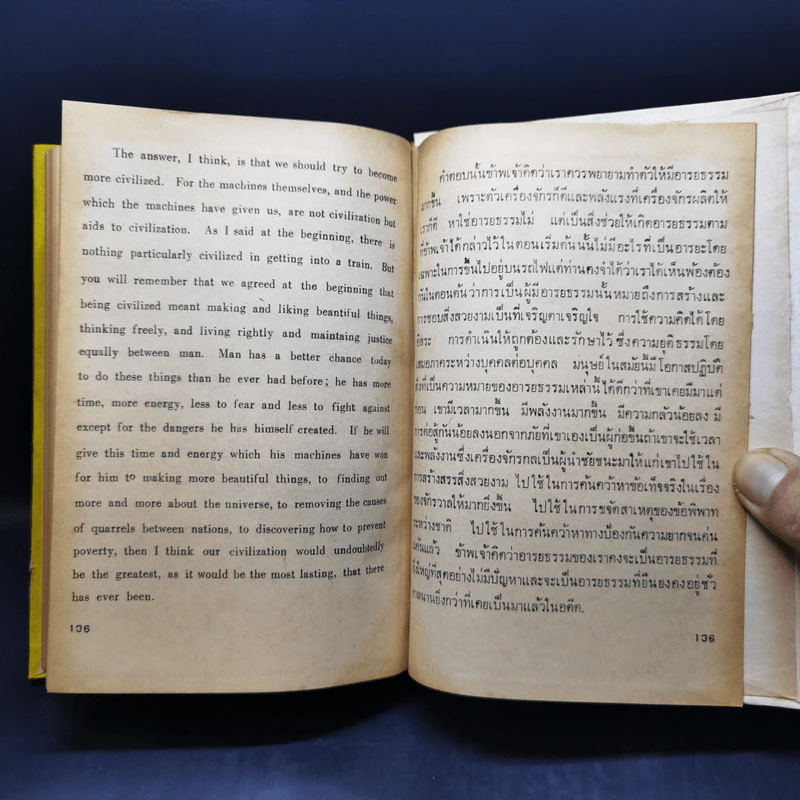 The answer, I think, is that we should try to become
more civilized. For the machines themselves, and the power
which the machines have given us, are not civilization but
aids to civilization. As I said at the beginning, there is
nothing particularly civilized in getting into a train. But
you will remember that we agreed at the beginning that
being civilized meant making and liking beantiful things,
thinking freely, and living rightly and maintaing justice
equally between man. Man has a better chance today
to do these things than he ever had before; he has more
time, more energy, less to fear and less to fight against
except for the dangers he has himself created. If he will
give this time and energy which his machines have won
for him to making more beautiful things, to finding out
more and more about the universe, to removing the causes
of quarrels between nations, to discovering how to prevent
poverty, then I think our civilization would undoubtedly
be the greatest, as it would be the most lasting, that there
has ever been.
136
คำตอบนั้นข้าพเจ้าคิดว่าเราควรพยายามทำตัวให้มีอารยธรรม
มากขึ้น เพราะตัวเครื่องจักรก็ดีและพลังแรงที่เครื่องจักรผลิตให้
เราก็ดี หาใช่อารยธรรมไม่ แต่เป็นสิ่งช่วยให้เกิดอารยธรรมตาม
ที่ข้าพเจ้าได้กล่าวไว้ในตอนเริ่มต้นนั้นไม่มีอะไรที่เป็นอารยะโดย
เฉพาะในการขึ้นไปอยู่บนรถไฟแต่ท่านคงจำได้ว่าเราได้เห็นพ้องต้อง
กันในตอนต้นว่าการเป็นผู้มีอารยธรรมนั้นหมายถึงการสร้างและ
การชอบสิ่งสวยงามเป็นที่เจริญตาเจริญใจ การใช้ความคิดได้โดย
อิสระ การดำเนินให้ถูกต้องและรักษาไว้ ซึ่งความยุติธรรมโดย
เสมอภาคระหว่างบุคคลต่อบุคคล มนุษย์ในสมัยนี้มีโอกาสปฏิบัติ
สิ่งที่เป็นความหมายของอารยธรรมเหล่านี้ได้ดีกว่าที่เขาเคยมีมาแต่
ก่อน เขามีเวลามากขึ้น มีพลังงานมากขึ้น มีความกลัวน้อยลง มี
การต่อสู้กันน้อยลงนอกจากภัยที่เขาเองเป็นผู้ก่อขึ้นถ้าเขาจะใช้เวลา
และพลังงานซึ่งเครื่องจักรกลเป็นผู้นำชัยชนะมาให้แก่เขาไปใช้ใน
การสร้างสรรสิ่งสวยงาม ไปใช้ในการค้นคว้าหาข้อเท็จจริงในเรื่อง
ของจักรวาลให้มากยิ่งขึ้น ไปใช้ในการขจัดสาเหตุของข้อพิพาท
ระหว่างชาติ ไปใช้ในการค้นคว้าหาทางป้องกันความยากจนค่น
แค้นแล้ว ข้าพเจ้าคิดว่าอารยธรรมของเราคงจะเป็นอารยธรรมที่
ยิ่งใหญ่ที่สุดอย่างไม่มีปัญหาและจะเป็นอารยธรรมที่ยืนยงคงอยู่ชั่ว
กาลนานยิ่งกว่าที่เคยเป็นมาแล้วในอดีต.
136